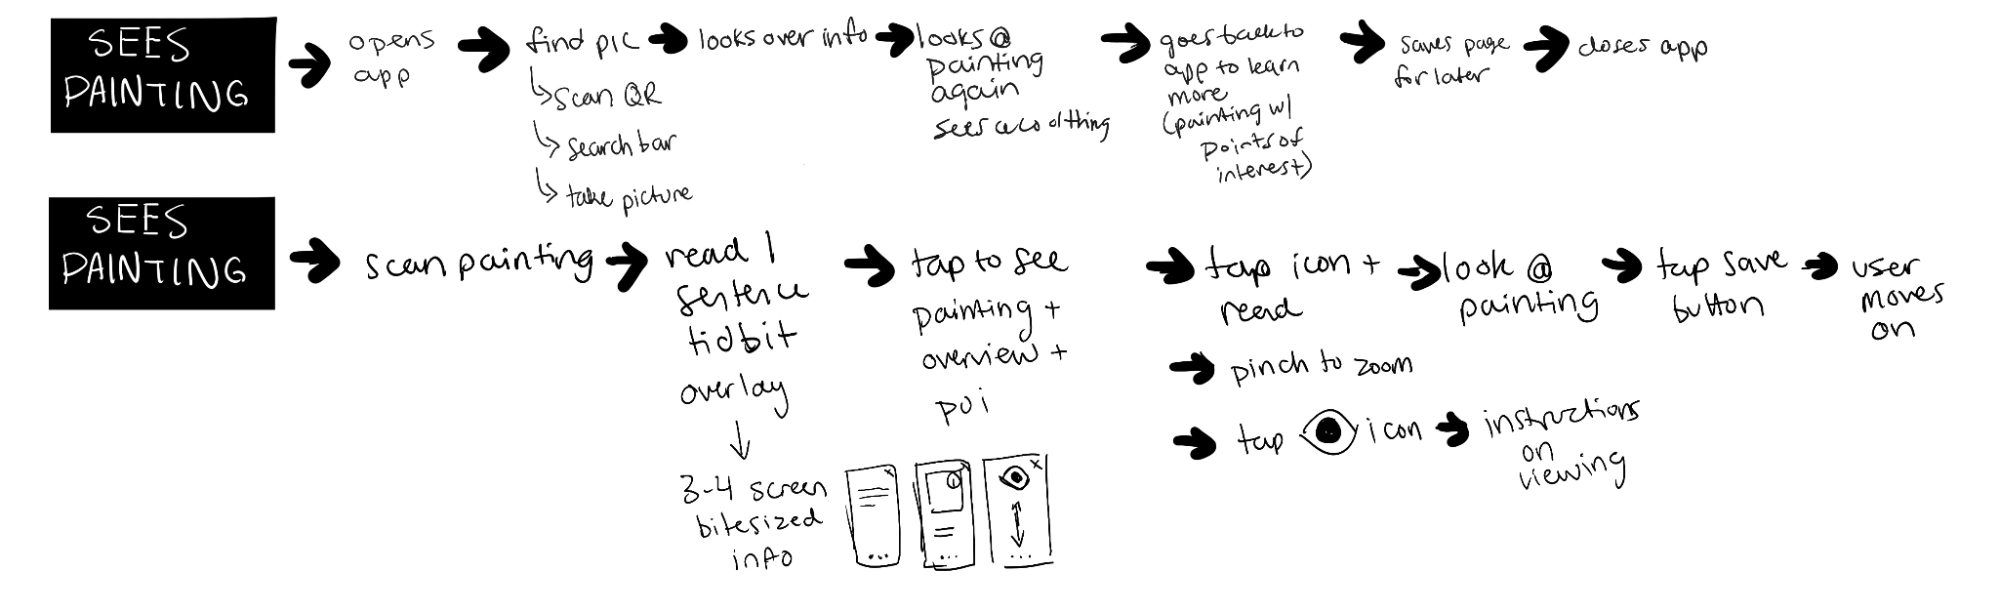 SEES
PAINTING
opens
app
find pic
scan QR
search bar
take picture
looks over info
looks @
painting
again
sees a cool thing
goes back to
app to learn
more
(painting w/
points of
interest)
saves page
for later
closes app
SEES
PAINTING
scan painting
read 1
sentence
tidbit
overlay
3-4 screen
bitesized
info
tap to see
painting +
overview +
poi
tap icon +
read
look @
painting
tap save
button
user
moves
on
pinch to zoom
tap icon
instructions
on
viewing